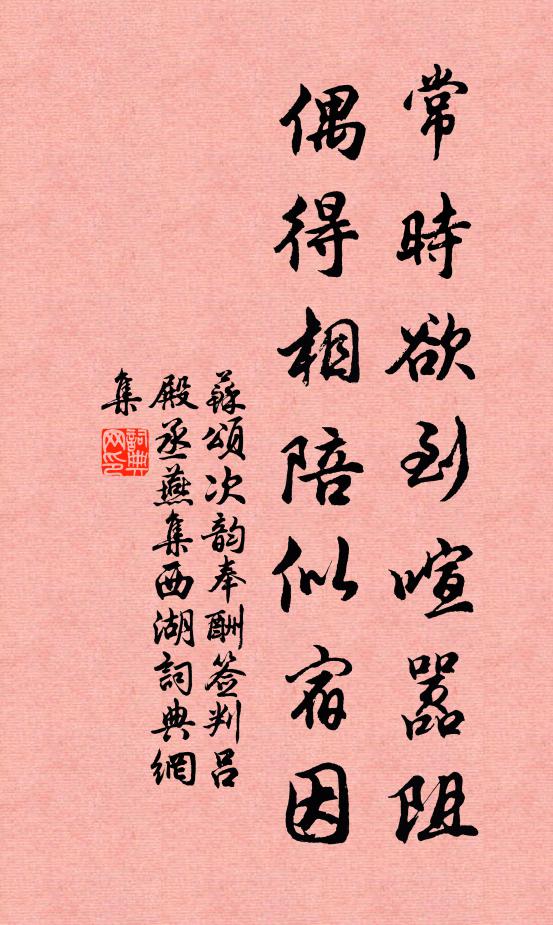 常時欲到喧嚣阻
偶得相陪似宿因
蘇頌次韵奉酬签判吕
殿丞燕集西湖詞典網
集
詞典网印